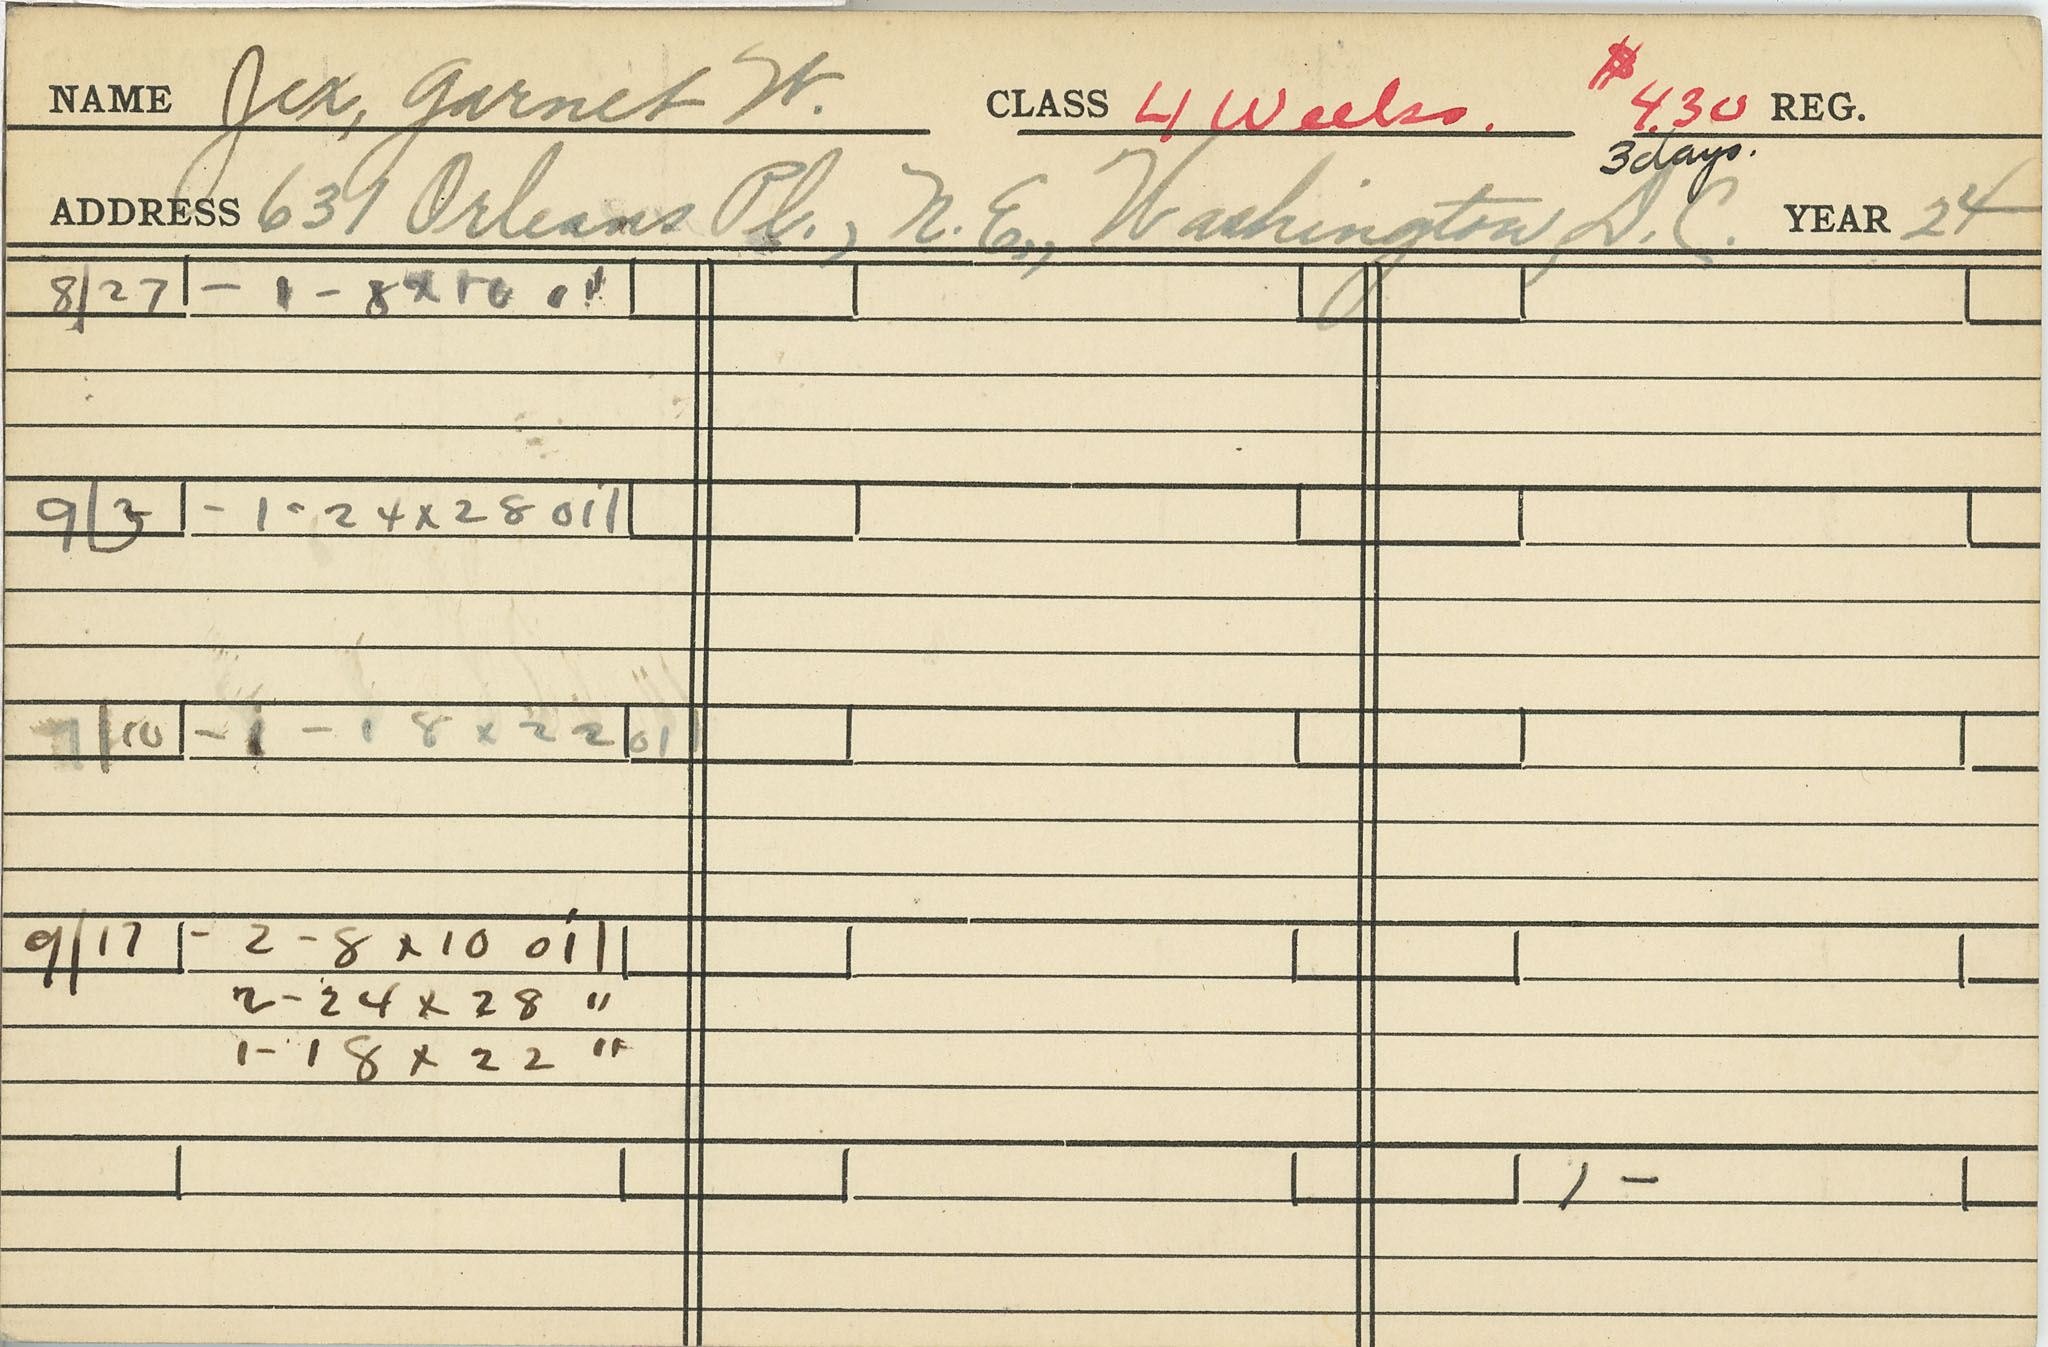 NAME Jex, Garnet W. CLASS 4 Weeks. $4.30 REG.
3 days.
ADDRESS 631 Orleans Pl., N.E., Washington, D.C. YEAR 24
8/27 - 1 - 8 x 10 "
9/3 - 1 - 24 x 28 oil
9/10 - 1 - 18 x 22 oil
9/17 - 2 - 8 x 10 oil
2 - 24 x 28 "
1 - 18 x 22 "
1 -